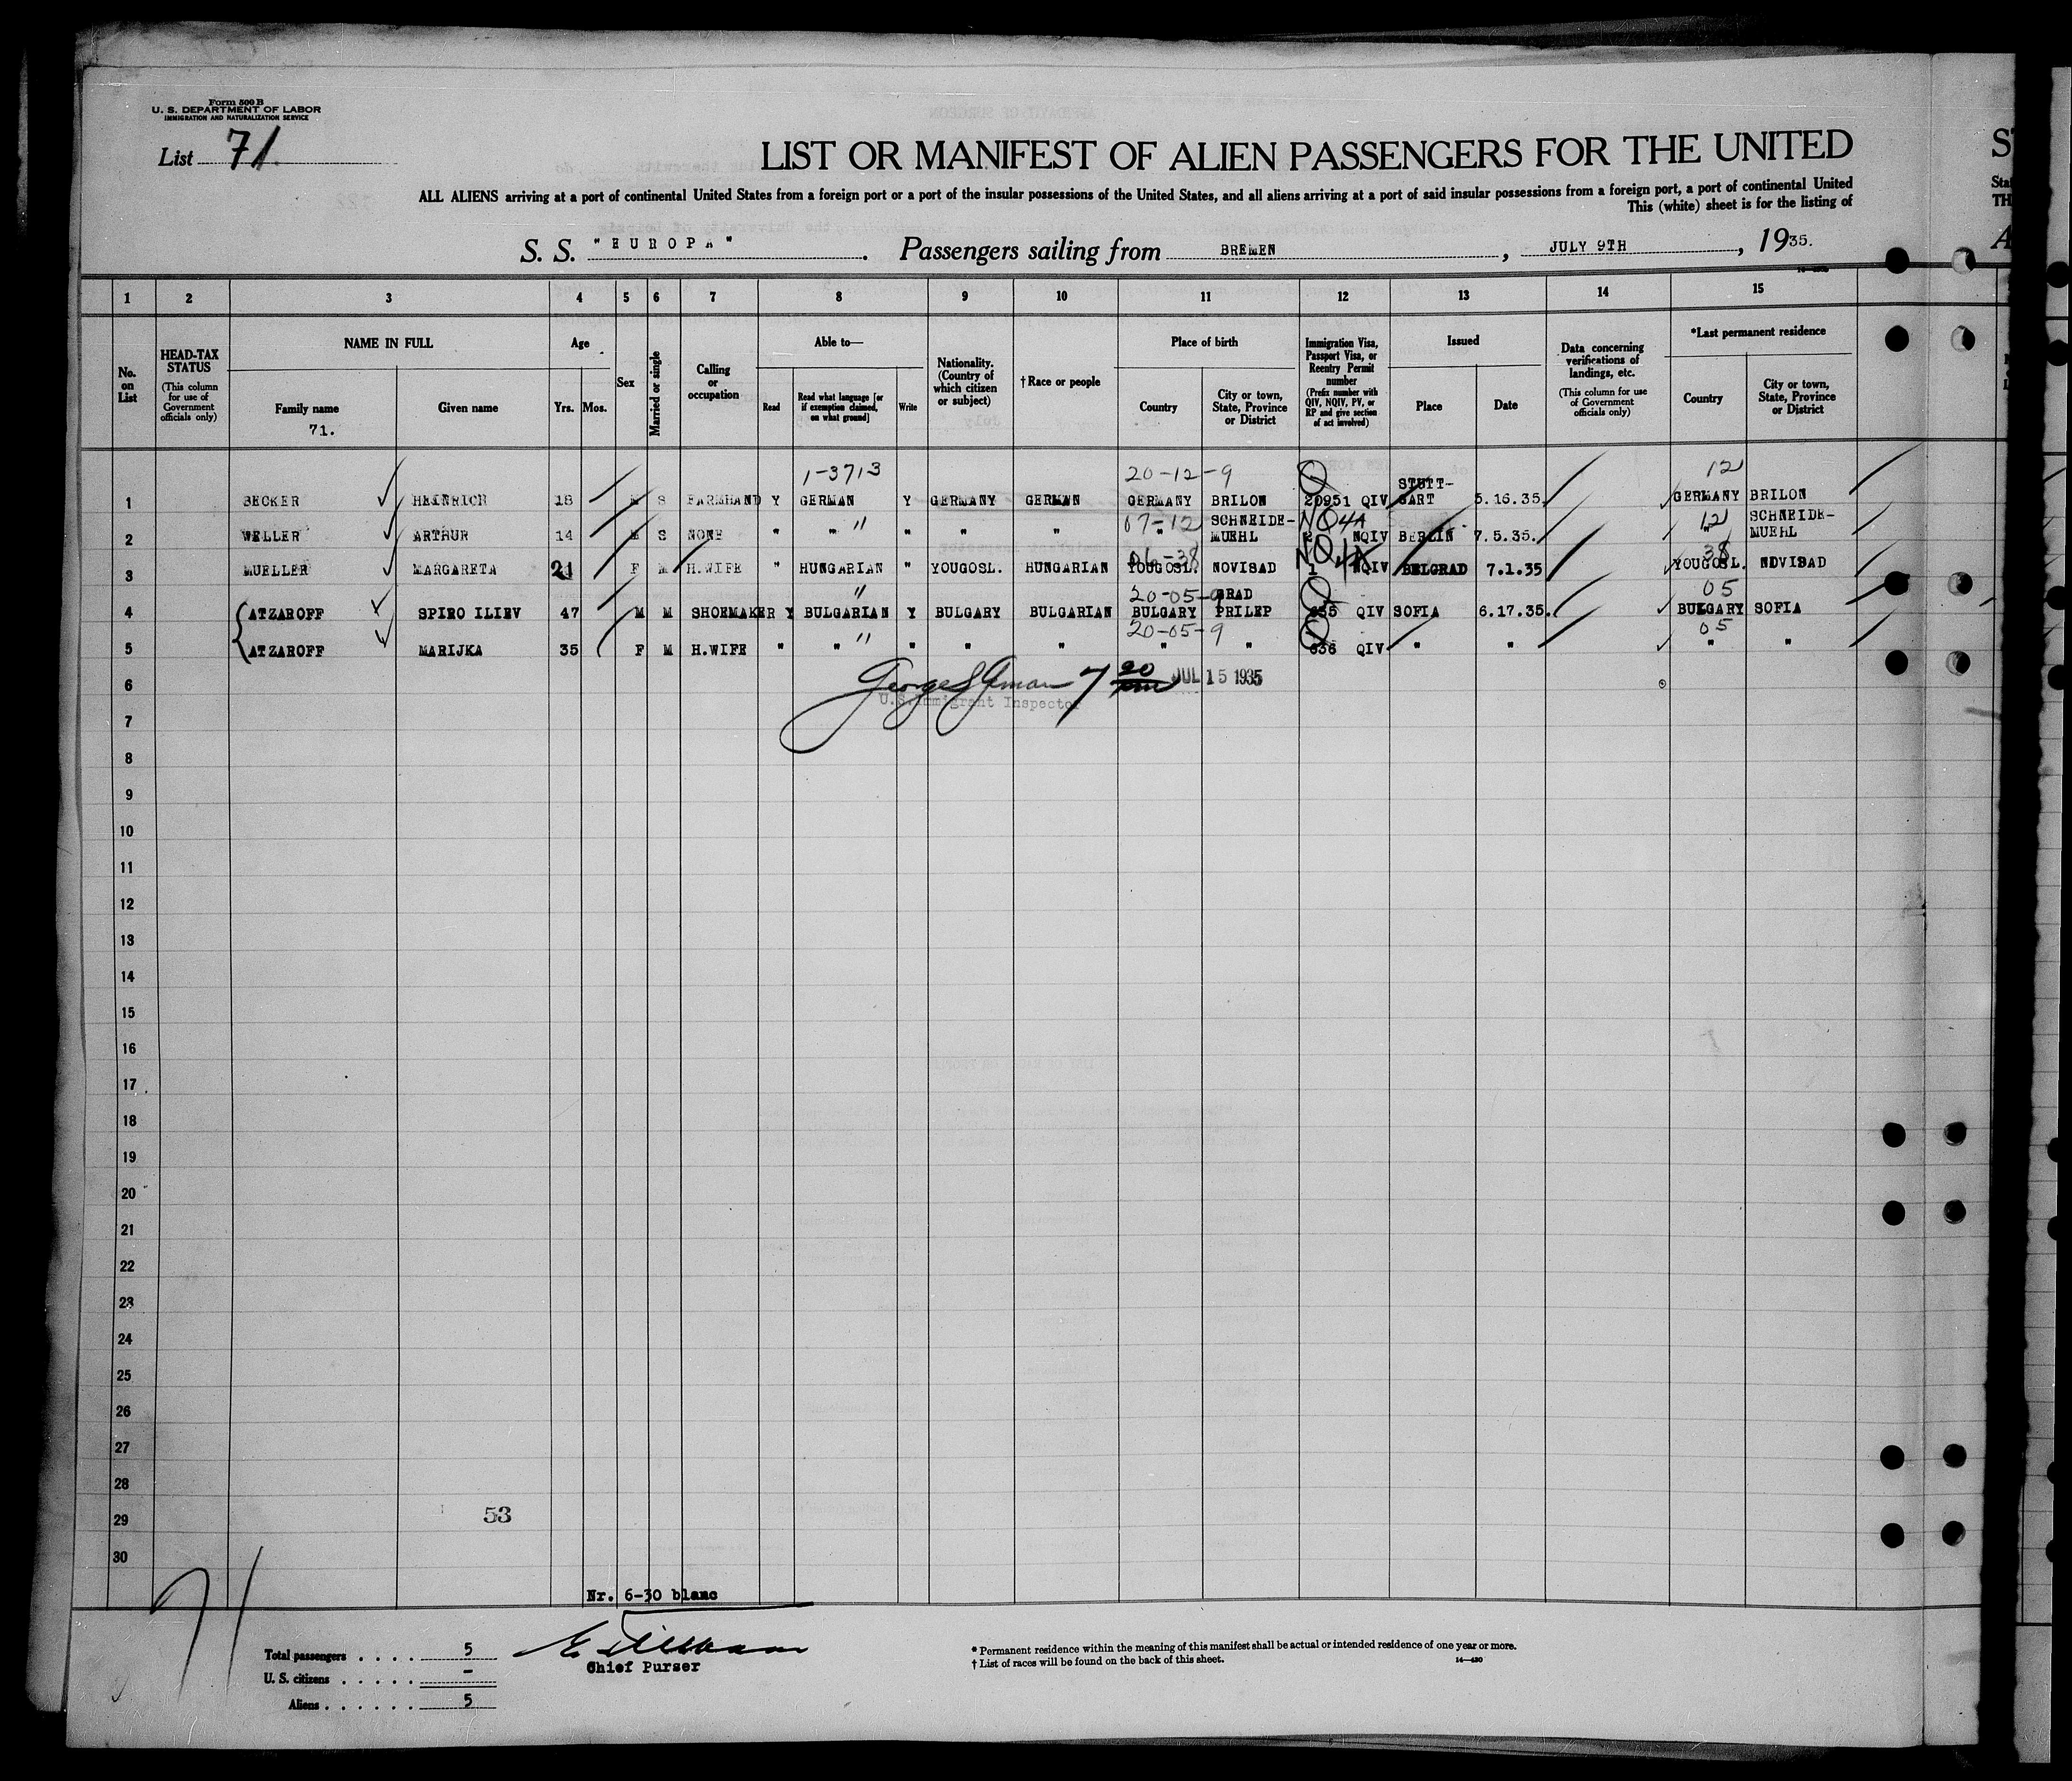 Form 500 B
U. S. DEPARTMENT OF LABOR
IMMIGRATION AND NATURALIZATION SERVICE
List 71
LIST OR MANIFEST OF ALIEN PASSENGERS FOR THE UNITED
ALL ALIENS arriving at a port of continental United States from a foreign port or a port of the insular possessions of the United States, and all aliens arriving at a port of said insular possessions from a foreign port, a port of continental United
This (white) sheet is for the listing of
S. S. "EUROPA". Passengers sailing from BREMEN, JULY 9TH, 1935.
1 2 3 4 5 6 7 8 9 10 11 12 13 14 15
No. on List
HEAD-TAX STATUS (This column for use of Government officials only)
NAME IN FULL Family name Given name
71.
Age Yrs. Mos.
Sex
Married or single
Calling or occupation
Able to— Read Read what language [or if exemption claimed, on what ground] Write
Nationality. (Country of which citizen or subject)
†Race or people
Place of birth Country City or town, State, Province or District
Immigration Visa, Passport Visa, or Reentry Permit number (Prefix number with QIV, NQIV, PV, or RP and give section of act involved)
Issued Place Date
Data concerning verifications of landings, etc. (This column for use of Government officials only)
*Last permanent residence Country City or town, State, Province or District
1-3713 20-12-9 12
1 BECKER HEINRICH 18 M S FARMHAND Y GERMAN Y GERMANY GERMAN GERMANY BRILON 20951 QIV STUTT-GART 5.16.35. GERMANY BRILON
07-12 NQ4A 12
2 WELLER ARTHUR 14 M S NONE " " " " " " SCHNEIDE-MUEHL NQIV BERLIN 7.5.35. " SCHNEIDE-MUEHL
06-38 NQ4A 38
3 MUELLER MARGARETA 21 F M H.WIFE " HUNGARIAN " YOUGOSL. HUNGARIAN YOUGOSL. NOVISAD 1 NQIV BELGRAD 7.1.35 YOUGOSL. NOVISAD
" 20-05-9 05
4 ATZAROFF SPIRO ILIEV 47 M M SHOEMAKER Y BULGARIAN Y BULGARY BULGARIAN BULGARY GRAD PRILEP 635 QIV SOFIA 6.17.35. BULGARY SOFIA
" 20-05-9 05
5 ATZAROFF MARIJKA 35 F M H.WIFE " " " " " " " 636 QIV " " " "
6 7 20 pm JUL 15 1935
U.S. Immigrant Inspector
7
8
9
10
11
12
13
14
15
16
17
18
19
20
21
22
23
24
25
26
27
28
53
29
30
Nr. 6-30 blanc
71
Total passengers . . . . 5
U. S. citizens . . . . . –
Aliens . . . . . . 5
Chief Purser
* Permanent residence within the meaning of this manifest shall be actual or intended residence of one year or more.
† List of races will be found on the back of this sheet.
14—430